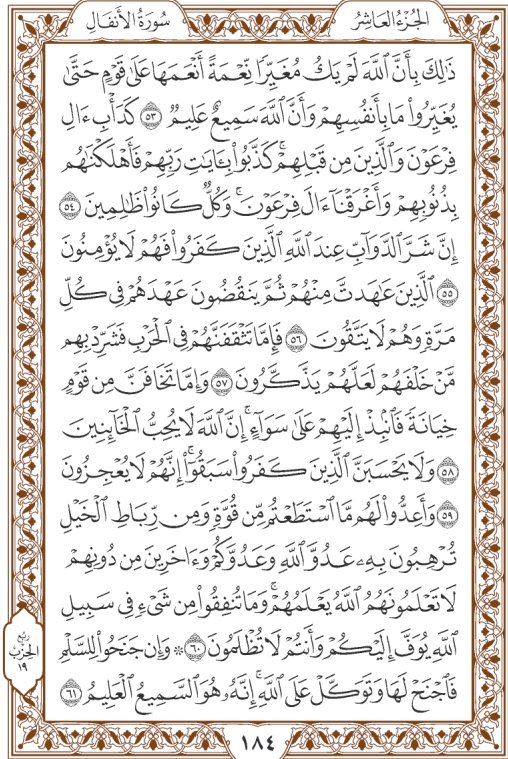 الجُزْءُ العَاشِرُ
سُورَةُ الأَنفَالِ
ذَٰلِكَ بِأَنَّ ٱللَّهَ لَمْ يَكُ مُغَيِّرًا نِّعْمَةً أَنْعَمَهَا عَلَىٰ قَوْمٍ حَتَّىٰ
يُغَيِّرُوا۟ مَا بِأَنفُسِهِمْ وَأَنَّ ٱللَّهَ سَمِيعٌ عَلِيمٌ ٥٣ كَدَأْبِ ءَالِ
فِرْعَوْنَ وَٱلَّذِينَ مِن قَبْلِهِمْ ۚ كَذَّبُوا۟ بِـَٔايَـٰتِ رَبِّهِمْ فَأَهْلَكْنَـٰهُم
بِذُنُوبِهِمْ وَأَغْرَقْنَآ ءَالَ فِرْعَوْنَ ۚ وَكُلٌّ كَانُوا۟ ظَـٰلِمِينَ ٥٤
إِنَّ شَرَّ ٱلدَّوَآبِّ عِندَ ٱللَّهِ ٱلَّذِينَ كَفَرُوا۟ فَهُمْ لَا يُؤْمِنُونَ
٥٥ ٱلَّذِينَ عَـٰهَدتَّ مِنْهُمْ ثُمَّ يَنقُضُونَ عَهْدَهُمْ فِى كُلِّ
مَرَّةٍ وَهُمْ لَا يَتَّقُونَ ٥٦ فَإِمَّا تَثْقَفَنَّهُمْ فِى ٱلْحَرْبِ فَشَرِّدْ بِهِم
مَّنْ خَلْفَهُمْ لَعَلَّهُمْ يَذَّكَّرُونَ ٥٧ وَإِمَّا تَخَافَنَّ مِن قَوْمٍ
خِيَانَةً فَٱنۢبِذْ إِلَيْهِمْ عَلَىٰ سَوَآءٍ ۚ إِنَّ ٱللَّهَ لَا يُحِبُّ ٱلْخَآئِنِينَ
٥٨ وَلَا يَحْسَبَنَّ ٱلَّذِينَ كَفَرُوا۟ سَبَقُوٓا۟ ۚ إِنَّهُمْ لَا يُعْجِزُونَ
٥٩ وَأَعِدُّوا۟ لَهُم مَّا ٱسْتَطَعْتُم مِّن قُوَّةٍ وَمِن رِّبَاطِ ٱلْخَيْلِ
تُرْهِبُونَ بِهِۦ عَدُوَّ ٱللَّهِ وَعَدُوَّكُمْ وَءَاخَرِينَ مِن دُونِهِمْ
لَا تَعْلَمُونَهُمُ ٱللَّهُ يَعْلَمُهُمْ ۚ وَمَا تُنفِقُوا۟ مِن شَىْءٍ فِى سَبِيلِ
ٱللَّهِ يُوَفَّ إِلَيْكُمْ وَأَنتُمْ لَا تُظْلَمُونَ ٦٠ ۞ وَإِن جَنَحُوا۟ لِلسَّلْمِ
فَٱجْنَحْ لَهَا وَتَوَكَّلْ عَلَى ٱللَّهِ ۚ إِنَّهُۥ هُوَ ٱلسَّمِيعُ ٱلْعَلِيمُ ٦١
رُبْع
الحِزْبُ
١٩
١٨٤